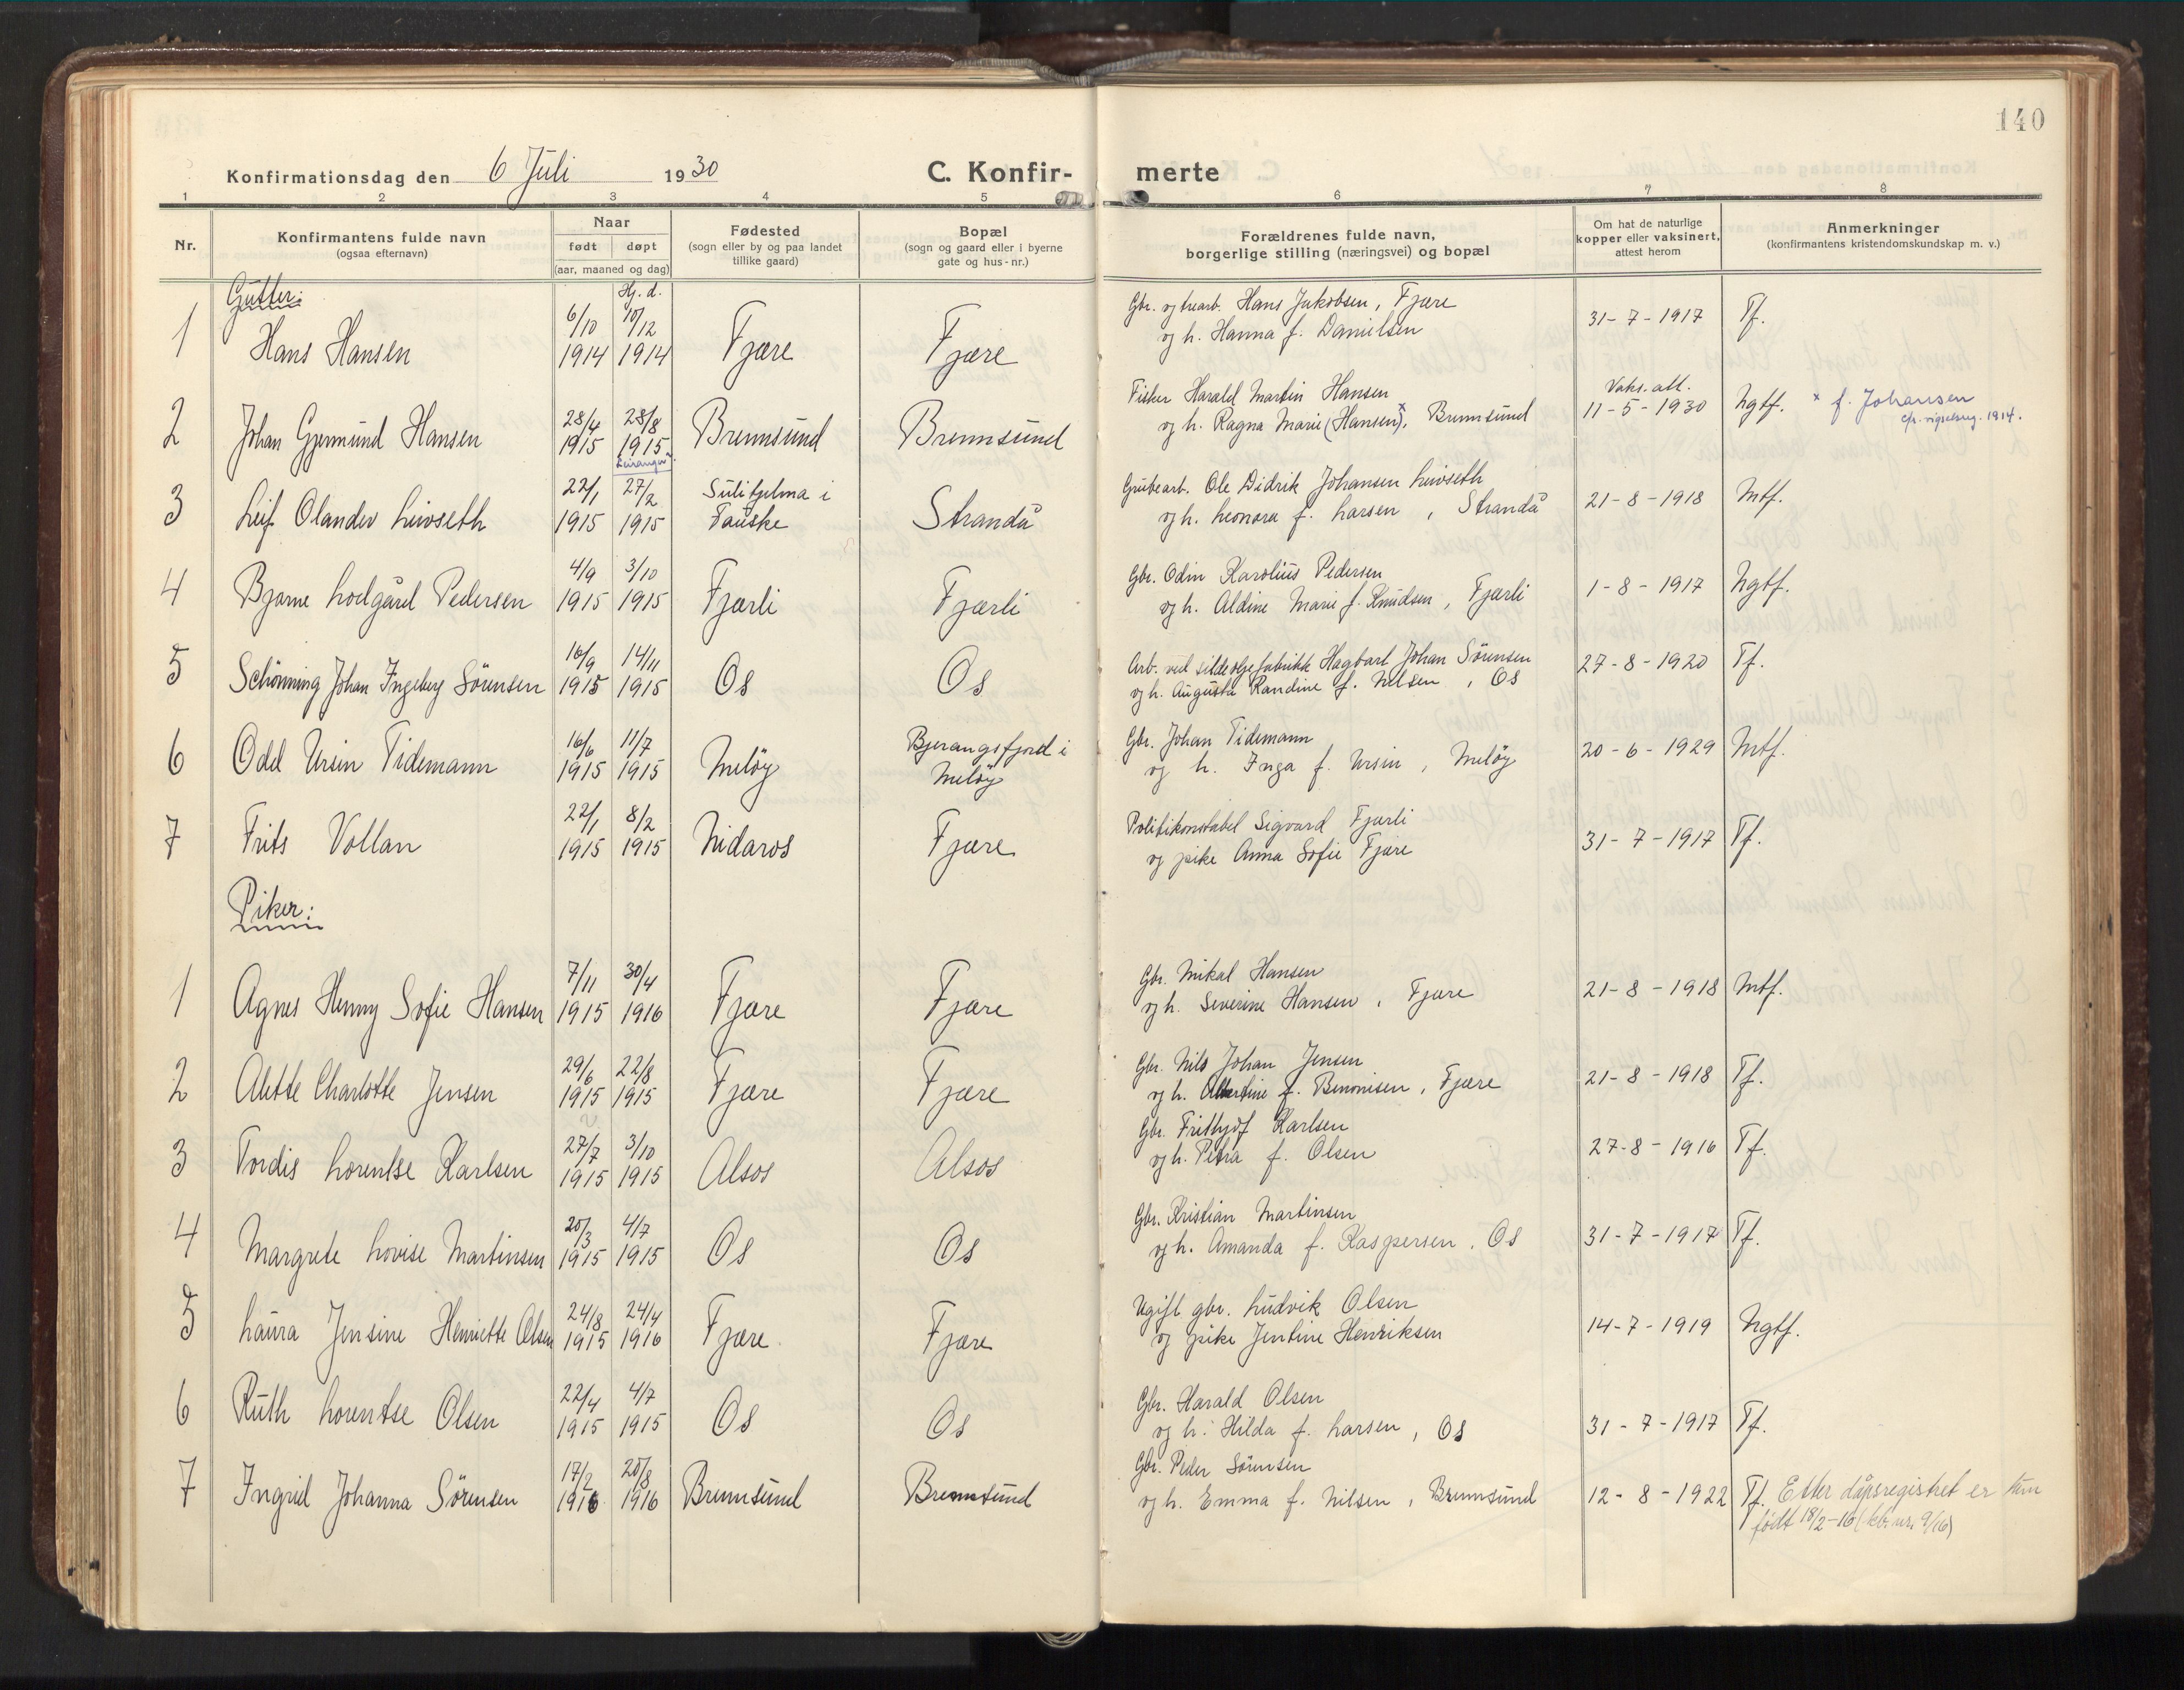 140
Konfirmationsdag den 6 Juli 1930
C. Konfir-
merte
1 2 3 4 5 6 7 8
Nr.
Konfirmantens fulde navn
(ogsaa efternavn)
Naar
født døpt
(aar, maaned og dag)
Fødested
(sogn eller by og paa landet
tillike gaard)
Bopæl
(sogn og gaard eller i byerne
gate og hus-nr.)
Forældrenes fulde navn,
borgerlige stilling (næringsvei) og bopæl
Om hat de naturlige
kopper eller vaksinert,
attest herom
Anmerkninger
(konfirmantens kristendomskundskap m. v.)
Gutter:
Hj. d.
1 Hans Hansen 6/10 1914 10/12 1914 Fjære Fjære
Gbr. og trearb. Hans Jakobsen, Fjære
og h. Hanna f. Danielsen
31-7-1917 Tf.
2 Johan Gjermund Hansen 28/4 1915 28/8 1915 Brennsund Brennsund
Fisker Harald Martin Hansen
og h. Ragna Marie (Hansen)x, Brennsund
Vaks.att.
11-5-1930 Ngtf. x f. Johansen
1914.
Leiranger
3 Leif Olander Livseth 22/1 1915 27/2 1915 Sulitjelma i
Fauske
Strandå
Grubearb. Ole Didrik Johansen Livseth
og h. Leonora f. Larsen, Strandå
21-8-1918 Mtf.
4 Bjarne Lodgård Pedersen 4/9 1915 3/10 1915 Fjærli Fjærli
Gbr. Odin Karolius Pedersen
og h. Aldine Marie f. Knudsen, Fjærli
1-8-1917 Ngtf.
5 Schönning Johan Ingeberg Sörensen 16/9 1915 14/11 1915 Os Os
Arb. ved sildoljefabrikk Hagbart Johan Sörensen
og h. Augusta Randine f. Nilsen, Os
27-8-1920 Tf.
6 Odd Ursin Tidemann 16/6 1915 11/7 1915 Meløy
Bjerangsfjord i
Meløy
Gbr. Johan Tidemann
og h. Inga f. Ursin, Meløy
20-6-1929 Mtf.
7 Frits Vollan 22/1 1915 8/2 1915 Nidaros Fjære
Politikonstabel Sigvard Fjærli
og pike Anna Sofie Fjære
31-7-1917 Tf.
Piker:
1 Agnes Henny Sofie Hansen 7/11 1915 30/4 1916 Fjære Fjære
Gbr. Mikal Hansen
og h. Severine Hansen, Fjære
21-8-1918 Mtf.
2 Alette Charlotte Jensen 29/6 1915 22/8 1915 Fjære Fjære
Gbr. Nils Johan Jensen
og h. Albertine f. Benonisen, Fjære
21-8-1918 Tf.
3 Tordis Lorentse Karlsen 27/7 1915 3/10 1915 Alsos Alsos
Gbr. Frithjof Karlsen
og h. Petra f. Olsen
27-8-1916 Tf.
4 Margrete Lovise Martinsen 20/3 1915 4/7 1915 Os Os
Gbr. Kristian Martinsen
og h. Amanda f. Kaspersen, Os
31-7-1917 Tf.
5 Laura Jensine Henriette Olsen 24/8 1915 24/4 1916 Fjære Fjære
Ugift gbr. Ludvik Olsen
og pike Jentine Henriksen
14-7-1919 Ngtf.
6 Ruth Lorentse Olsen 22/4 1915 4/7 1915 Os Os
Gbr. Harald Olsen
og h. Hilda f. Larsen, Os
31-7-1917 Tf.
7 Ingrid Johanna Sörensen 17/2 1916 20/8 1916 Brennsund Brennsund
Gbr. Peder Sörensen
og h. Emma f. Nilsen, Brennsund
12-8-1922 Tf. Etter dåpsregistret er hun
født 18/2-16 (kb. nr. 9/16)